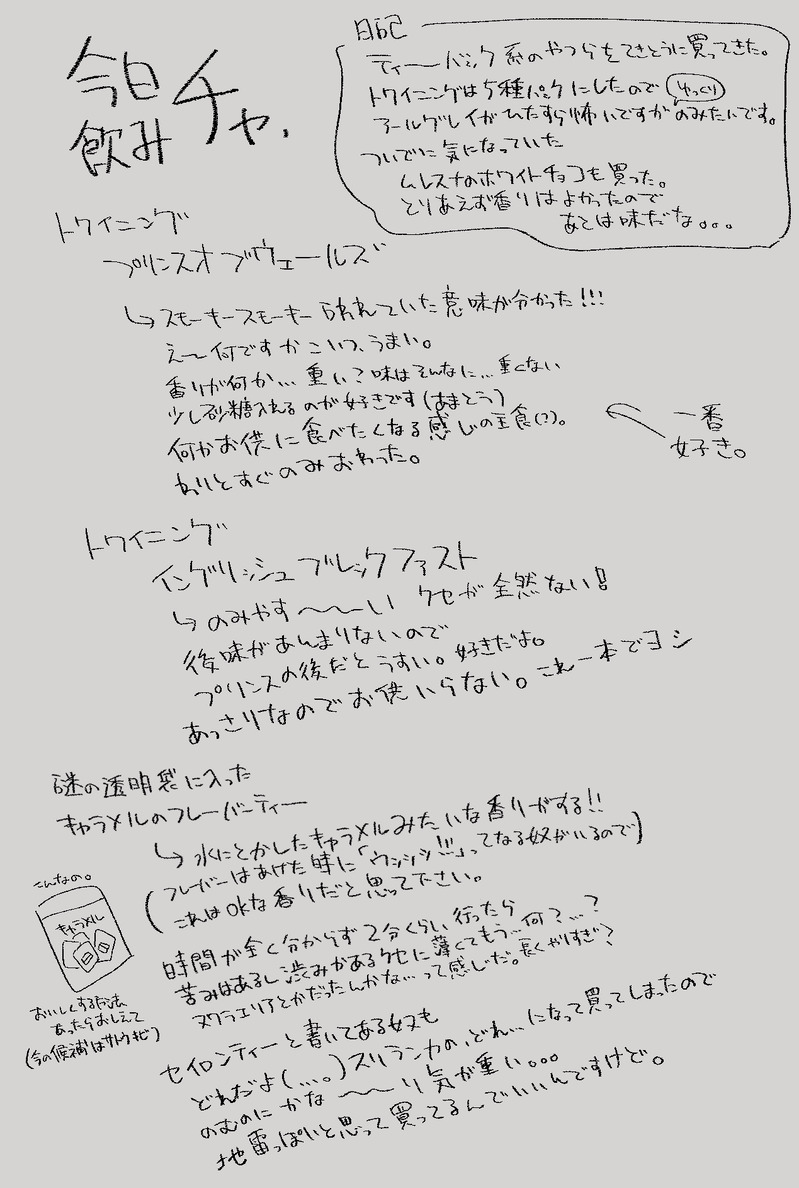 今日
飲みチャ、
日記
ティーバック系のやつらをてきとうに買ってきた。
トワイニングは5種パックにしたので ゆっくり
アールグレイがひたすら怖いですがのみたいです。
ついでに気になっていた
ムレスナのホワイトチョコも買った。
とりあえず香りはよかったので
あとは味だな。。。
トワイニング
プリンスオブヴェールズ
↳スモーキースモーキー言われていた意味が分かった!!!
え〜何ですかこいつ、うまい。
香りが何か…重い?味はそんなに…重くない
少し砂糖入れるのが好きです(あまとう)
何かお供に食べたくなる感じの主食(?)。
わりとすぐのみおわった。
一番
好き。
トワイニング
イングリッシュブレックファスト
↳のみやす〜〜〜い クセが全然ない!
後味があんまりないので
プリンスの後だとうすい。好きだよ。
あっさりなのでお供いらない。これ一本でヨシ
謎の透明袋に入った
キャラメルのフレーバーティー
↳水にとかしたキャラメルみたいな香りがする!!
(フレーバーはあけた時に「ウッッッ!!!」ってなる奴がいるので
これはOKな香りだと思って下さい。)
こんなの。
キャラメル
おいしくする方法
あったらおしえて
(今の候補はサトウキビ)
時間が全く分からず2分くらい行ったら
苦みはあるし渋みがあるクセに薄くてもう…何?…?
ヌワラエリアとかだったんかな…って感じだ。長くやりすぎ?
セイロンティーと書いてある奴も
どれだよ(…。)スリランカの、どれ…になって買ってしまったので
のむのにかな〜〜り気が重い。。。
地雷っぽいと思って買ってるんでいいんですけど。